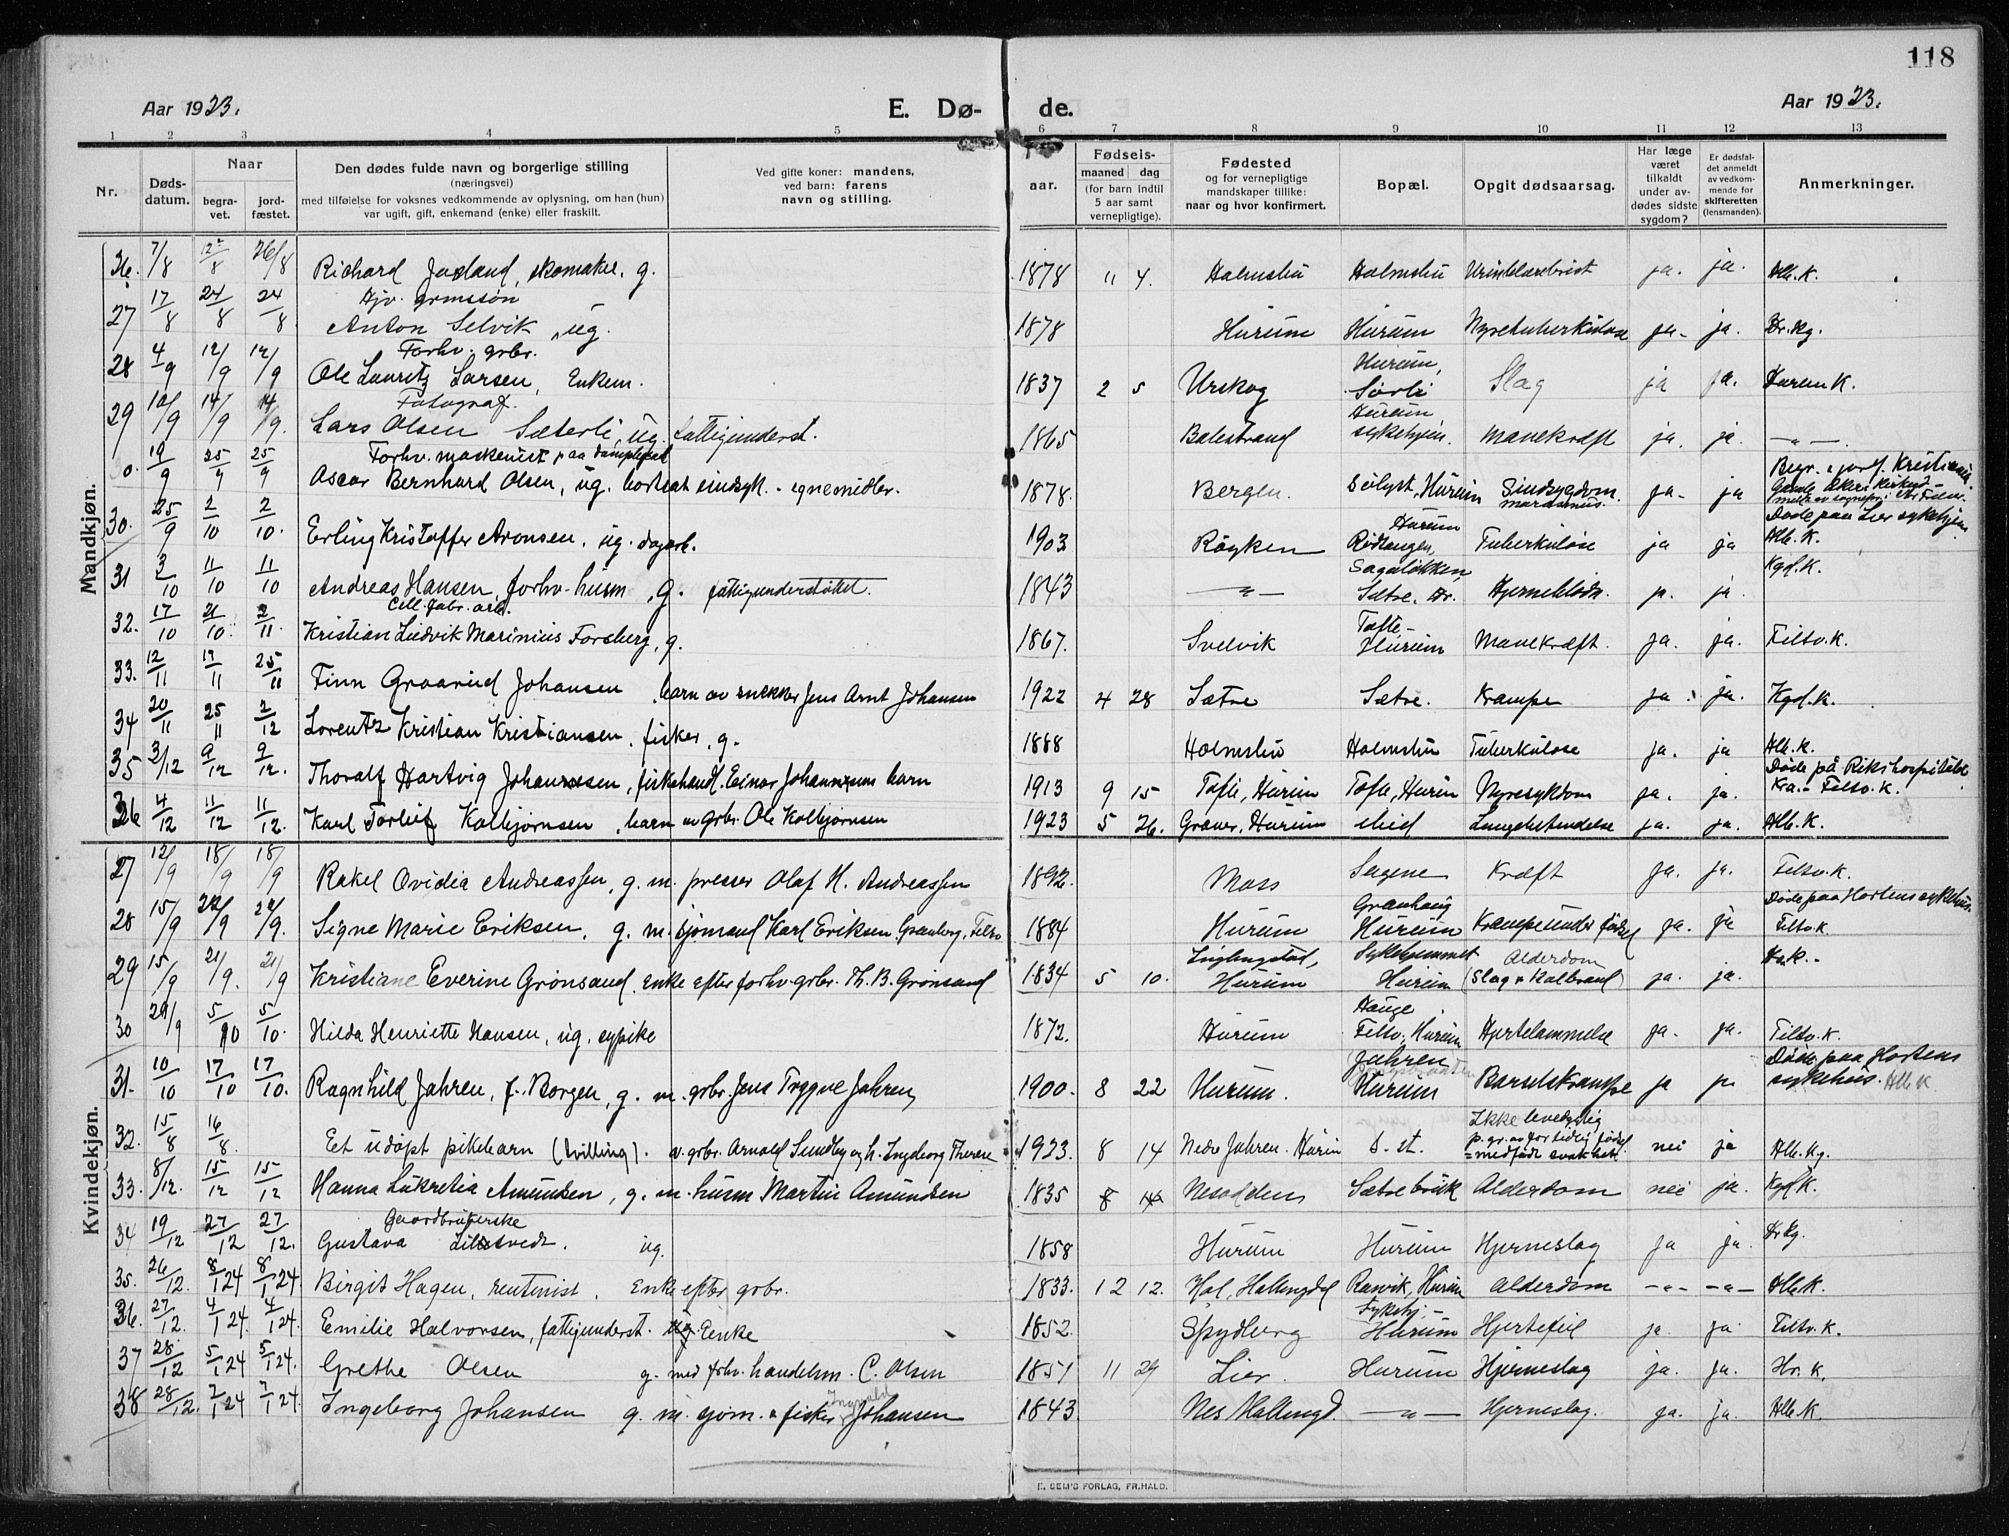 118
Aar 1923.
E. Dø-
de.
Aar 1923.
1 2 3 4 5 6 7 8 9 10 11 12 13
Nr.
Døds-
datum.
Naar
begra-
vet.
jord-
fæstet.
Den dødes fulde navn og borgerlige stilling
(næringsvei)
med tilføielse for voksnes vedkommende av oplysning, om han (hun)
var ugift, gift, enkemand (enke) eller fraskilt.
Ved gifte koner: mandens,
ved barn: farens
navn og stilling.
aar.
Fødsels-
maaned dag
(for barn indtil
5 aar samt
vernepligtige).
Fødested
og for vernepligtige
mandskaper tillike:
naar og hvor konfirmert.
Bopæl.
Opgit dødsaarsag.
Har læge
været
tilkaldt
under av-
dødes sidste
sygdom?
Er dødsfal-
det anmeldt
av vedkom-
mende for
skifteretten
(lensmanden).
Anmerkninger.
Mandkjøn.
26. 7/8 12/8 26/8 Richard Jaxland, skomaker, g. 1878 11 4. Holmsbu Holmsbu ja. ja. Hlb.K.
27 17/8 24/8 24/8 Anton Selvik, ug. 1878 Hurum Hurum Nyretuberkulose ja- ja. Hr. kg.
Forhv. grbr.
28 4/9 12/9 12/9 Ole Lauritz Larsen, Enkem. 1837 2 5 Urskog Hurum, Slag ja ja. Hurum K.
Fotograf.
29 10/9 14/9 14/9. Lars Olsen Sæterli, ug. Fattigunderst. 1865 Balestrand Hurum sykehjem. Mavekræft ja. ja. -"-
Forhv. maskenist paa
0. 19/9 25/9 25/9 Oscar Bernhard Olsen, ug. bortsat sindsyk. - egne midler. 1878. Bergen. Solyst, Hurum Sindsygdom. marasmus. ja- ja
30. 25/9 2/10 2/10. Erling Kristoffer Aronsen, ug. dagarb. 1903 Røyken Hurum Rødtangen, Tuberkuløse ja ja Døde paa Lier sykehjem Hlb. K.
31 3/10 11/10 11/10 Andreas Hansen, forhv. husm, g. fattigunderstøttet. 1843 -"- Sætre, Hr. Hjerneblødn. ja. ja. Kgd. K.
Cell. fabr. arb.
32. 17/10 21/10. 2/11. Kristian Ludvik Marinius Forsberg, g. 1867. Svelvik Tofte- Hurum Mavekræft. ja. ja. Filtv. K.
33. 12/11 19/11 25/11 Finn Graarud Johansen, barn av snekker Jens Arnt Johansen 1922 4 28 Sætre Sætre. Krampe ja. ja. Kgd. K.
34 20/11 25/11 2/12 Lorentz Kristian Kristiansen, fisker, g. 1888 Holmsbu Holmsbu Tuberkuløse ja. ja Hlb. K.
35 3/12 9/12 9/12. Thoralf Hartvig Johannesen, fiskehandl. Einar Johannesens barn 1913 9 15 Tofte, Hurum Tofte, Hurum Nyresykdom ja. ja. Døde på Rikshospitalet Kra. - Filtv. K.
36 4/12 11/12 11/12. Karl Torleif Kolbjørnsen, barn av grbr. Ole Kolbjørnsen 1923 5 26. Graver, Hurum ibid Lungebetændelse ja. ja. Hlb. K.
Kvindekjøn.
27 12/9 18/9 18/9 Rakel Ovidia Andreassen, g. m. presser Olaf H. Andreassen 1892. Moss Sagene Kræft ja. ja. Filtv. K.
28 15/9 22/9 22/9. Signe Marie Eriksen, g. m. sjømand Karl Eriksen Granberg, Filtv 1884 Hurum Granhaug Hurum Krampe under fødsel ja. ja Døde paa Hortens sykehus. Filtv. K.
29 15/9 21/9. 21/9 Kristiane Everine Grønsand, enke efter forhv. grbr. Th. B. Grønsand 1834 5 10. Hurum Sykehjemmet Hurum Alderdom (Slag & Kolbrand) ja. ja. H.K.
30 29/9 5/10 5/10. Hilda Henriette Hansen, ug. sypike 1872. Hurum Hauge, Filtv. Hurum Hjertelammelse ja. ja. Filtv. K.
31. 10/10 17/10 17/10. Ragnhild Jahren, f. Borgen, g. m. grbr. Jens Trygve Jahren, 1900. 8 22 Hurum. Jahren Hurum Barselskrampe ja ja Døde paa Hortens sykehus. Hlb K.
32. 15/8 16/8. Et udøpt pikebarn (tvilling). av grbr. Arnold Sundby og h. Ingeborg Therese 1923. 8 14 Nedre Jahren, Hurum d. st. Ikke levedyktig p. gr. av for tidlig fødsel = medfødt svakhet nei ja Hlb. Kg.
33. 8/12. 15/12 15/12 Hanna Lukretia Amundsen, g. m. husm Martin Amundsen 1835 8 14 Nesodden Sætrebruk Alderdom nei ja. Kgd K.
Gaardbrukerske
34 19/12 27/12 27/12. Gustava Lilletvedt. ug. 1858 Hurum Hurum Hjerneslag ja ja. Hr kg.
35. 26/12. 8/1 24 8/1 24 Birgit Hagen, rentenist, Enke efter grbr. 1833. 12 12. Hol, Hallingdal Ranvik, Hurum Alderdom -"- -"- Hlb. K.
36. 27/12. 4/1 24. 4/1 24. Emilie Halvorsen, fattigunderst. Enke 1852. Spydberg Sykehj. - Hurum Hjertefeil ja. ja. Filtv. K.
37 28/12 5/1 24 5/1 24. Grethe Olsen g. med forhv. handelsm. C. Olsen 1851 11 29 Lier. Hurum Hjerneslag ja. ja. Hr. K.
38 28/12. 7/1 24 7/1 24. Ingeborg Johansen g. m. sjøm. & fisker Ingvald Johansen 1843. Nes Hallingd. -"- Hjerneslag. ja. ja. Hlb. K.
E. SEM'S FORLAG, FR.HALD.